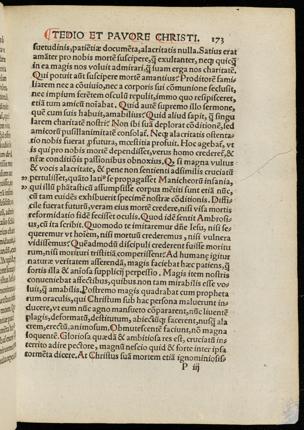 TEDIO ET PAVORE CHRISTI. 173
suetudinis, patiẽtiæ documẽta, alacritatis nulla. Satius erat
amãter pro nobis mortẽ suscipere, ꝗ̃ exultanter, neqꝫ quicꝗ̃
in ea magis nos voluit admirari, ꝗ̃ suam erga nos charitatẽ.
Qui potuit aũt suscipere mortẽ amantius? Proditorẽ fami-
liarem nec a cõuiuio, nec a corporis sui cõmunione seclusit,
nec impium serẽtem osculũ repulit, immo quo resipisceret,
etiã tum amicũ noĩabat. Quid autẽ supremo illo sermone,
quẽ cum suis habuit, amabilius? Quid aliud sapit, ꝗ̃ singu
larem charitatẽ nostri? Non ibi sua deplorat cõditionẽ, sed
amicorũ pusillanimitatẽ consolat̃. Neqꝫ alacritatis ostenta-
tio nobis fuerat futura, mœstitia profuit. Hoc agebat, vt
is qui pro nobis morẽ dependisset, verus homo crederet̃, &
nr̃æ cõditiõis passionibus obnoxius. Qꝫ si magna vultus
& vocis alacritate, & pene non sentienti adsimilis cruciatũ
pertulisset, quãto iam latius se propagasset Manicheorũ insania,
qui illũ phãtasticũ assumpsisse corpus mẽtiti sunt etiã nũc,
cũ tam euidẽs exhibuerit specimẽ nostræ cõditionis. Diffi-
cile fuerat futurũ, veram eius mortẽ credere, nisi vera mortis
reformidatio fidẽ fecisset oculis. Quid idẽ sentit Ambrosi-
us, cũ ita scribit. Quomodo te imitaremur dñe Iesu, nisi se-
queremur vt hoĩem, nisi mortuũ crederemus, nisi vulnera
vidissemus? Quẽadmodũ discipuli crederent fuisse moritu
rum, nisi morituri tristitiã comperissent? Ad humanę igitur
naturæ veritatem asserendã, magis faciebat hæc patiens, ꝗ̃
fortis illa & aniosa supplicij perpessio. Magis item nostris
conueniebat affectibus, quibus non tam mirabilis esse vo-
luit, ꝗ̃ amabilis. Postremo magis quadrabat cum propheta
rum oraculis, qui Christum sub hac persona maluerunt in-
ducere, vt eum nũc agno mansueto cõpararent, nũc liuentẽ
plagis, deformatũ, destitutum, abiectũqꝫ facerent, nusꝗ̃ ala
crem, erectũ, animosum. Obmutescentẽ faciunt, nõ magna
loquentẽ. Gloriosa quædã & ambitiosa res est, cruciatũ in
territo adire pectore, magnũ nescio quid & forte inter ipsa
tormẽta dicere. At Christus suã mortem etiã ignominiosis
P iij